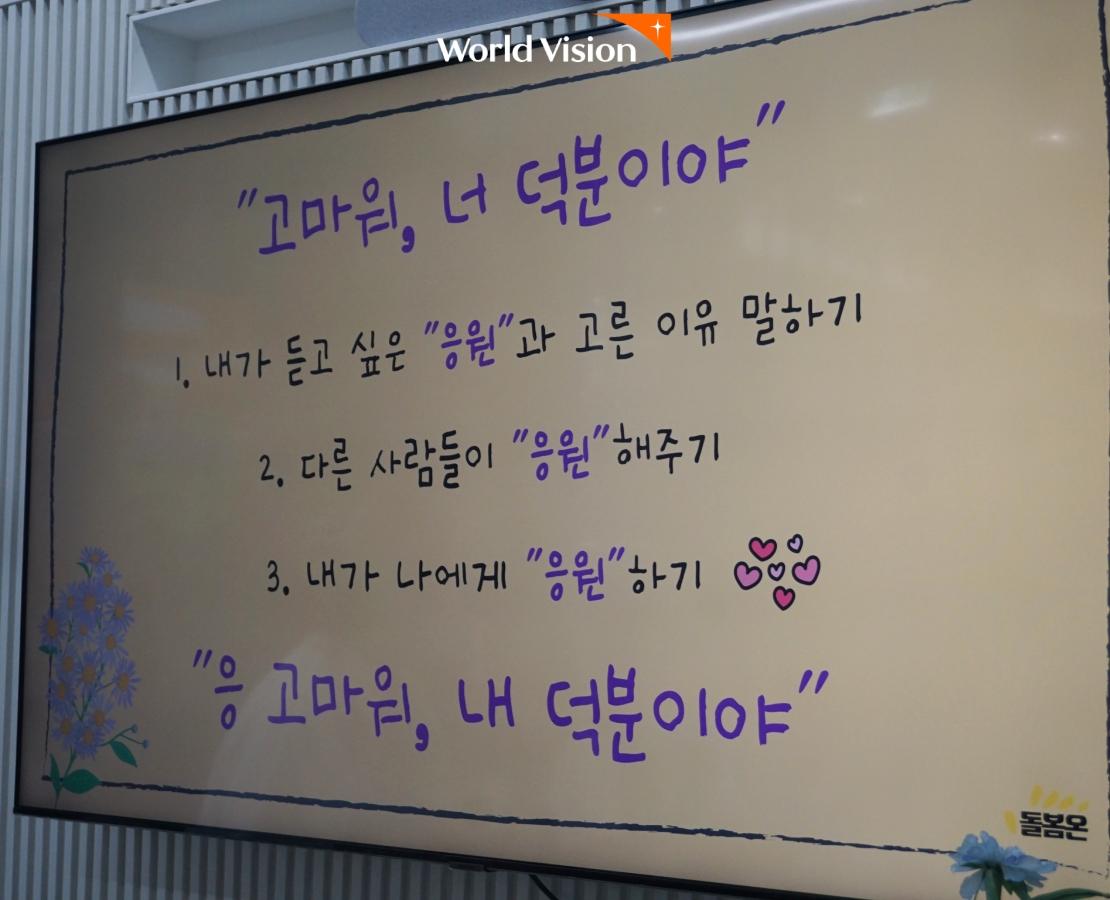 World Vision
"고마워, 너 덕분이야"
1. 내가 듣고 싶은 "응원"과 고른 이유 말하기
2. 다른 사람들이 "응원"해주기
3. 내가 나에게 "응원"하기
"응 고마워, 내 덕분이야"
돌봄온